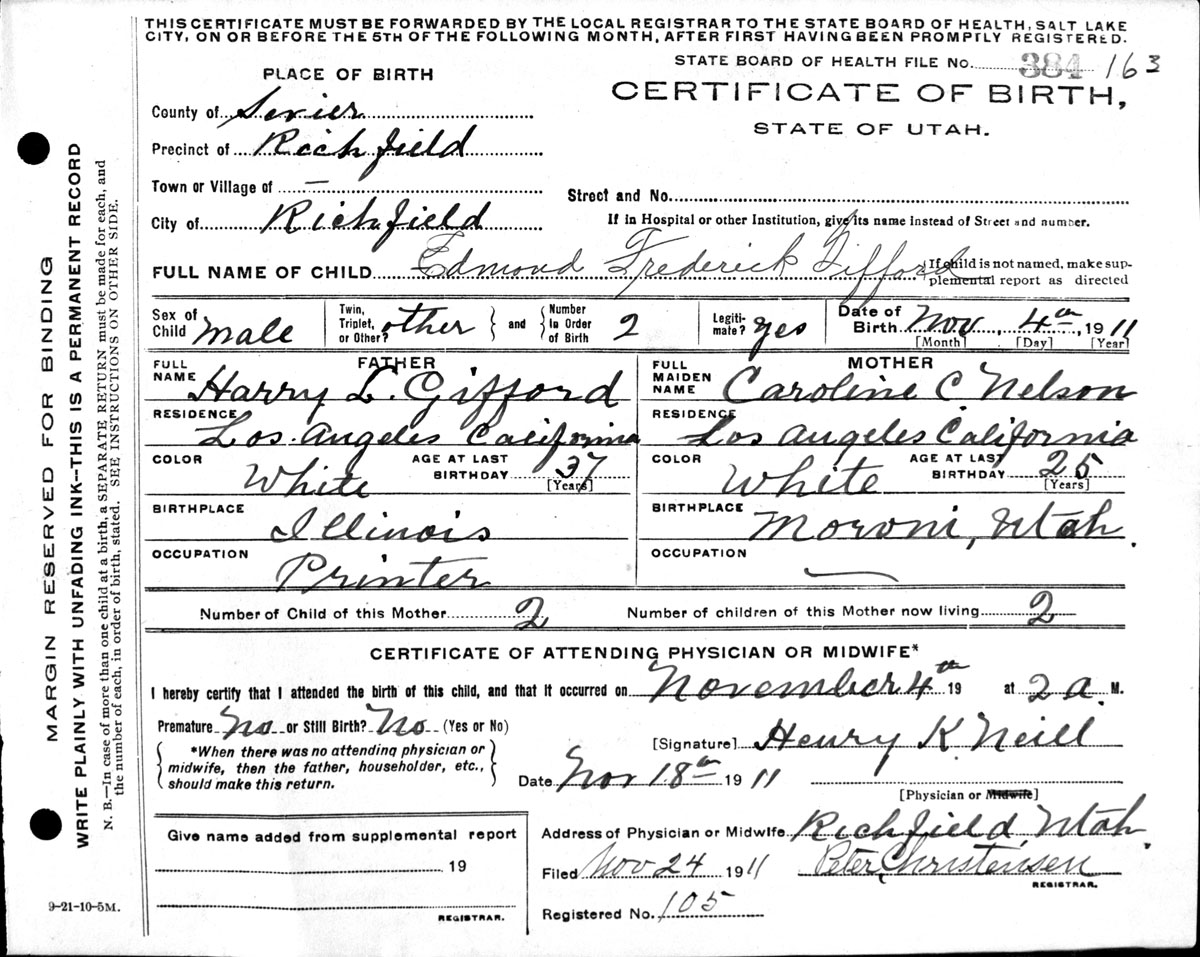 THIS CERTIFICATE MUST BE FORWARDED BY THE LOCAL REGISTRAR TO THE STATE BOARD OF HEALTH, SALT LAKE
CITY, ON OR BEFORE THE 5TH OF THE FOLLOWING MONTH, AFTER FIRST HAVING BEEN PROMPTLY REGISTERED.
STATE BOARD OF HEALTH FILE No. 384 163
CERTIFICATE OF BIRTH,
STATE OF UTAH.
PLACE OF BIRTH
County of Sevier
Precinct of Richfield
Town or Village of —
Street and No.
City of Richfield
If in Hospital or other Institution, give its name instead of Street and number.
FULL NAME OF CHILD Edmond Frederick Gifford
If child is not named, make sup-
plemental report as directed
Sex of Child male
Twin, Triplet, or Other? other and Number In Order of Birth 2
Legiti-mate? yes
Date of Birth Nov, 4th, 1911
[Month] [Day] [Year]
FATHER
FULL NAME Harry L. Gifford
RESIDENCE Los Angeles California
COLOR White AGE AT LAST BIRTHDAY 37 [Years]
BIRTHPLACE Illinois
OCCUPATION Printer
MOTHER
FULL MAIDEN NAME Caroline C Nelson
RESIDENCE Los Angeles California
COLOR White AGE AT LAST BIRTHDAY 25 [Years]
BIRTHPLACE Moroni, Utah.
OCCUPATION —
Number of Child of this Mother 2 Number of children of this Mother now living 2
CERTIFICATE OF ATTENDING PHYSICIAN OR MIDWIFE*
I hereby certify that I attended the birth of this child, and that it occurred on November 4th 19 at 2 a. M.
Premature No or Still Birth? No (Yes or No)
*When there was no attending physician or
midwife, then the father, householder, etc.,
should make this return.
[Signature] Henry K Neill
Date Nov 18th 1911
[Physician or Midwife]
Give name added from supplemental report
19
REGISTRAR.
Address of Physician or Midwife Richfield, Utah.
Filed Nov 24 1911 Peter Christensen
REGISTRAR.
Registered No. 105
9-21-10-5M.
MARGIN RESERVED FOR BINDING
WRITE PLAINLY WITH UNFADING INK—THIS IS A PERMANENT RECORD
N. B.—In case of more than one child at a birth, a SEPARATE RETURN must be made for each, and
the number of each, in order of birth, stated. SEE INSTRUCTIONS ON OTHER SIDE.